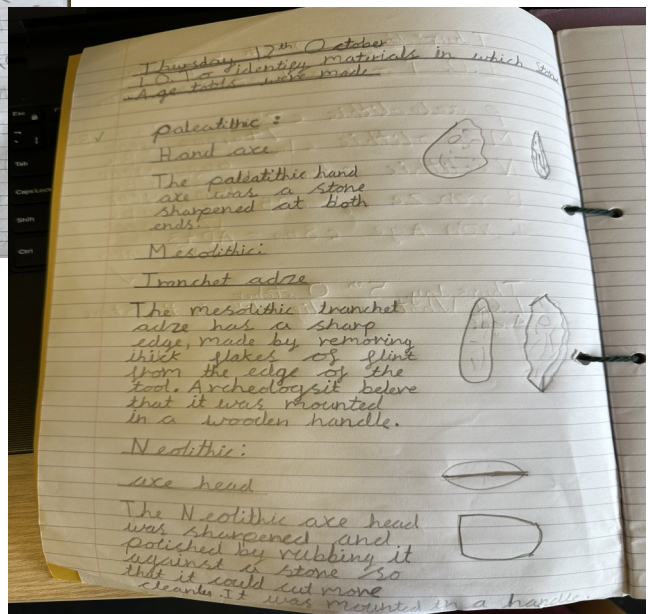 Thursday 12th October
L.O. To identify materials in which Stone
Age tools were made
paleatithic :
Hand axe
The paleatithic hand
axe was a stone
sharpened at both
ends.
Mesolithic:
Tranchet adze
The mesolithic tranchet
adze has a sharp
edge, made by removing
thick flakes of flint
from the edge of the
tool. Archeologsit beleve
that it was mounted
in a wooden handle.
Neolithic:
axe head
The Neolithic axe head
was sharpened and
polished by rubbing it
against a stone so
that it could cut more
cleanly. It was mounted in a handle.
Esc
Tab
Caps Lock
Shift
Ctrl